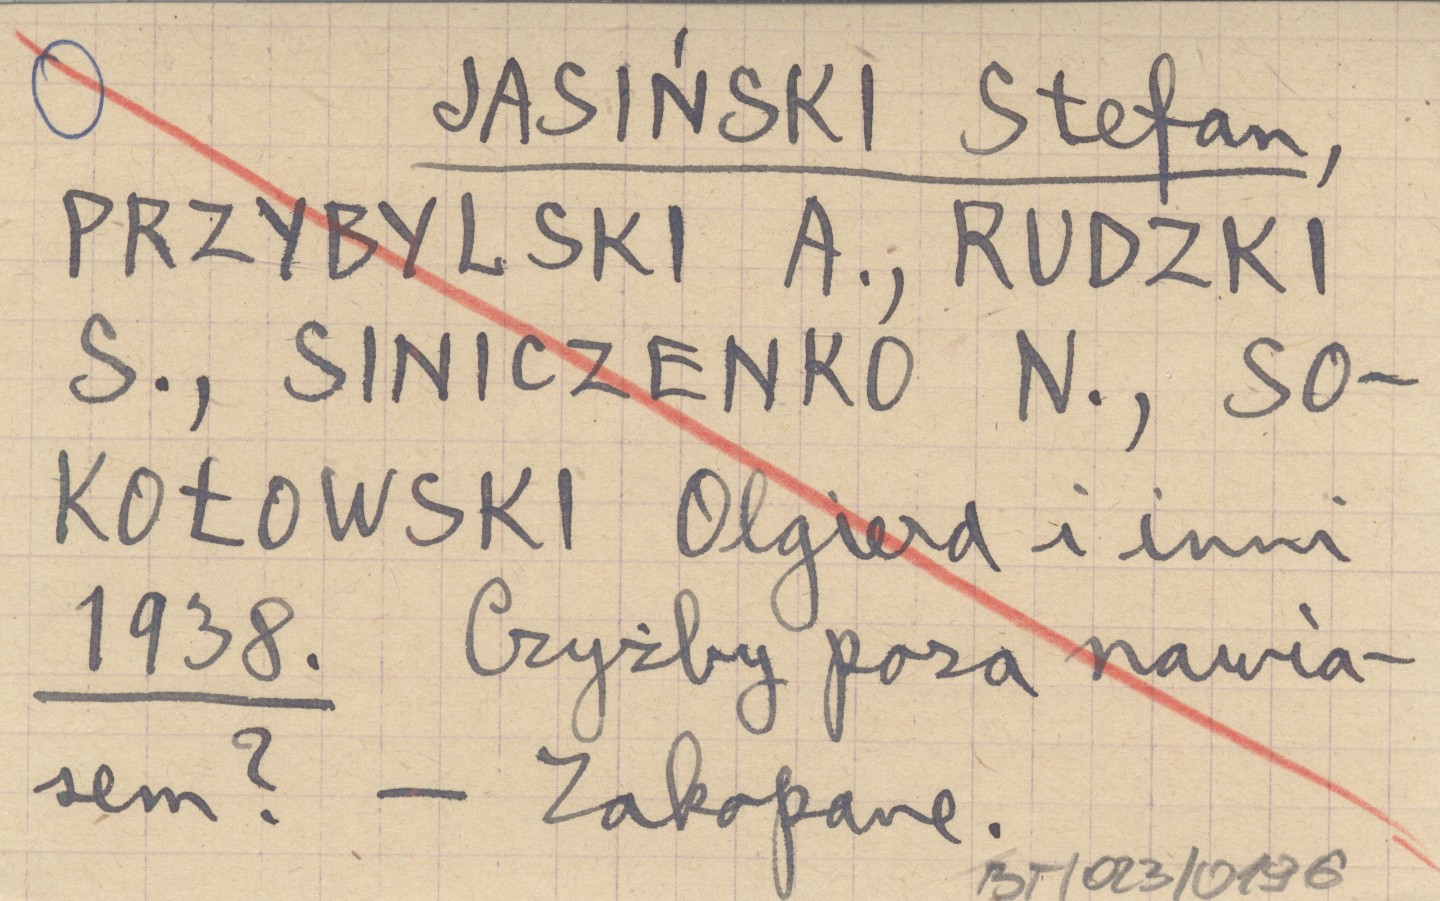 JASIŃSKI Stefan,
PRZYBYLSKI A., RUDZKI
S., SINICZENKO N., SO-
KOŁOWSKI Olgierd i inni
1938. Czyżby poza nawia-
sem? — Zakopane.
BT/023/0196